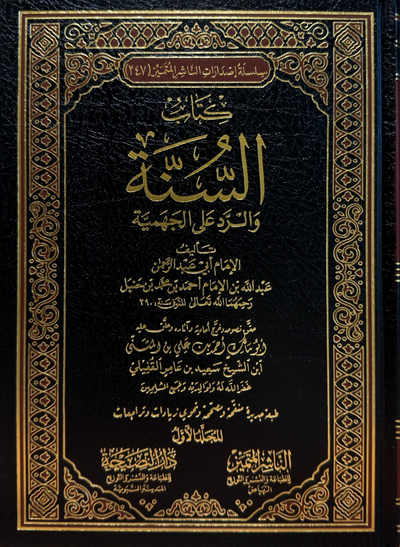 سلسلة إصدارات الناشر المتميز (٢٤٧)
كتاب
السُّنَّة
والرد على الجهمية
تأليف
الإمام أبي عبد الرحمن
عبد الله بن الإمام أحمد بن محمد بن حنبل
رحمهما الله تعالى المتوفى ٢٩٠
حقق نصوصه وخرج أحاديثه وآثاره وعلق عليه
أبو مالك أحمد بن علي بن المثنى
ابن الشيخ سعيد بن عامر القفيلي
غفر الله له ولوالديه ولجميع المسلمين
طبعة جديدة منقحة ومصححة وتحوي زيادات وتراجعات
المجلد الأول
الناشر المتميز
للطباعة والنشر والتوزيع
الرياض
دار النصيحة
للطباعة والنشر والتوزيع
المدينة النبوية